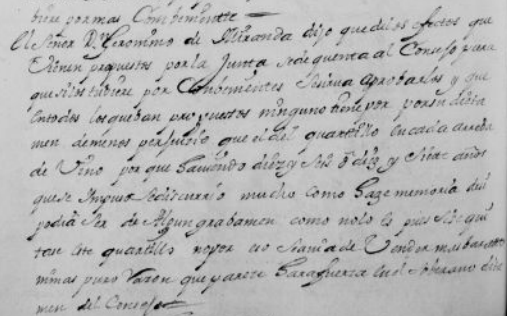 biere por mas Combeniente
El Señor Dn Geronimo de Miranda dijo que de los efectos que
vienen propuestos por la Junta se de quenta al Consejo para
que si los tubiere por Combenientes se sirva aprobarlos y que
en todos los que ban propuestos ninguno tiene por su dicta
men de menos perjuicio que el del quartillo en cada arroba
de Vino por que haviendo diez y seis o diez y siete años
que se Impuso se discurrio mucho como haze memoria si
podia ser de Algun grabamen como no lo es pues se qui
tan este quartillo no por eso se havia de Vender mas barato
ni mas puro Razon que parece hara fuerza en el soberano dicta
men del Consejo